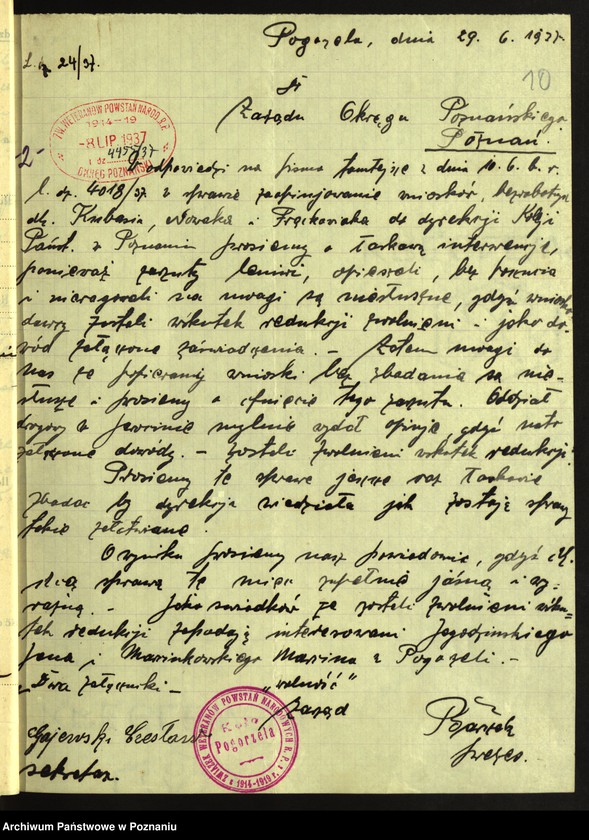 Pogorzela, dnia 29. 6. 1937
L. dz. 24/37.
10
Do
Zarządu Okręgu Poznańskiego
Poznań.
ZW. WETERANÓW POWSTAŃ NAROD. R.P.
1914-19
-8 LIP. 1937
L. dz. 4457/37
OKRĘG POZNAŃSKI
W odpowiedzi na pismo tamtejsze z dnia 10. 6. b. r.
l. dz. 4018/37 w sprawie zaopinjowanie wniosków, bezrobotn.
dh. Kubasia, Nowaka i Frąckowiaka do dyrekcji Koleji
Państ. w Poznaniu prosimy o łaskawą interwencję,
ponieważ zarzuty leniwi, opieszali, bez
i na uwagi są niesłuszne, gdyż wniosko-
dawcy zostali wskutek redukcji zwolnieni - jako do-
wód załączone zaświadczenia. - Zatem uwagi do
nas że popieramy wnioski bez zbadania są nie-
słuszne i prosimy o cofnięcie tego zarzutu. Oddział
drogowy w Jarocinie mylnie wydał opinję, gdyż
załączone dowody. - zostali zwolnieni wskutek redukcji.
Prosimy tę sprawę jeszcze raz łaskawie
zbadać by dyrekcja wiedziała jak zostają sprawy
takie załatwiane.
O wyniku prosimy nasz powiadomić, gdyż
chcą sprawę tę mieć zupełnie jasną i wy-
raźną. - Jako świadków że zostali zwolnieni wsku-
tek redukcji zapodają interesowani Jagodzińskiego
Jana i Marinkowskiego Marcina z Pogorzeli. -
Dwa załączniki - "wolność"
Zarząd
ZWIĄZEK WETERANÓW POWSTAŃ NARODOWYCH R.P. z 1914-1919 r.
Koło
Pogorzela
Gajewski Czesław
sekretarz.
prezes.
Archiwum Państwowe w Poznaniu